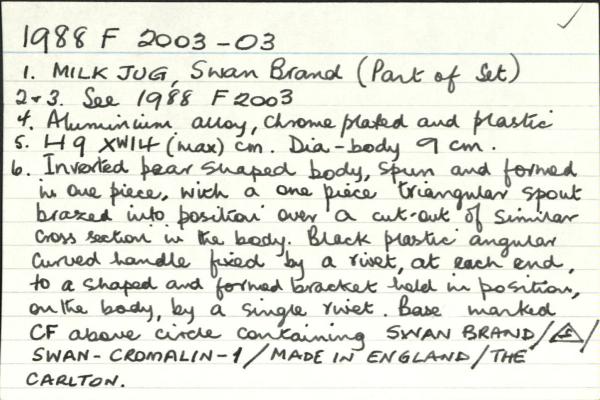 1988 F 2003-03
1. MILK JUG, Swan Brand (Part of Set)
2+3. See 1988 F2003
4. Aluminium alloy, chrome plated and plastic
5. H9 XW14 (max) cm. Dia-body 9 cm.
6. Inverted pear shaped body, spun and formed
in one piece, with a one piece triangular spout
brazed into position over a cut-out of similar
cross section in the body. Black plastic angular
curved handle fixed by a rivet, at each end,
to a shaped and formed bracket held in position,
on the body, by a single rivet. Base marked
CF above circle containing SWAN BRAND/ /
SWAN-CROMALIN-1/MADE IN ENGLAND/THE
CARLTON.